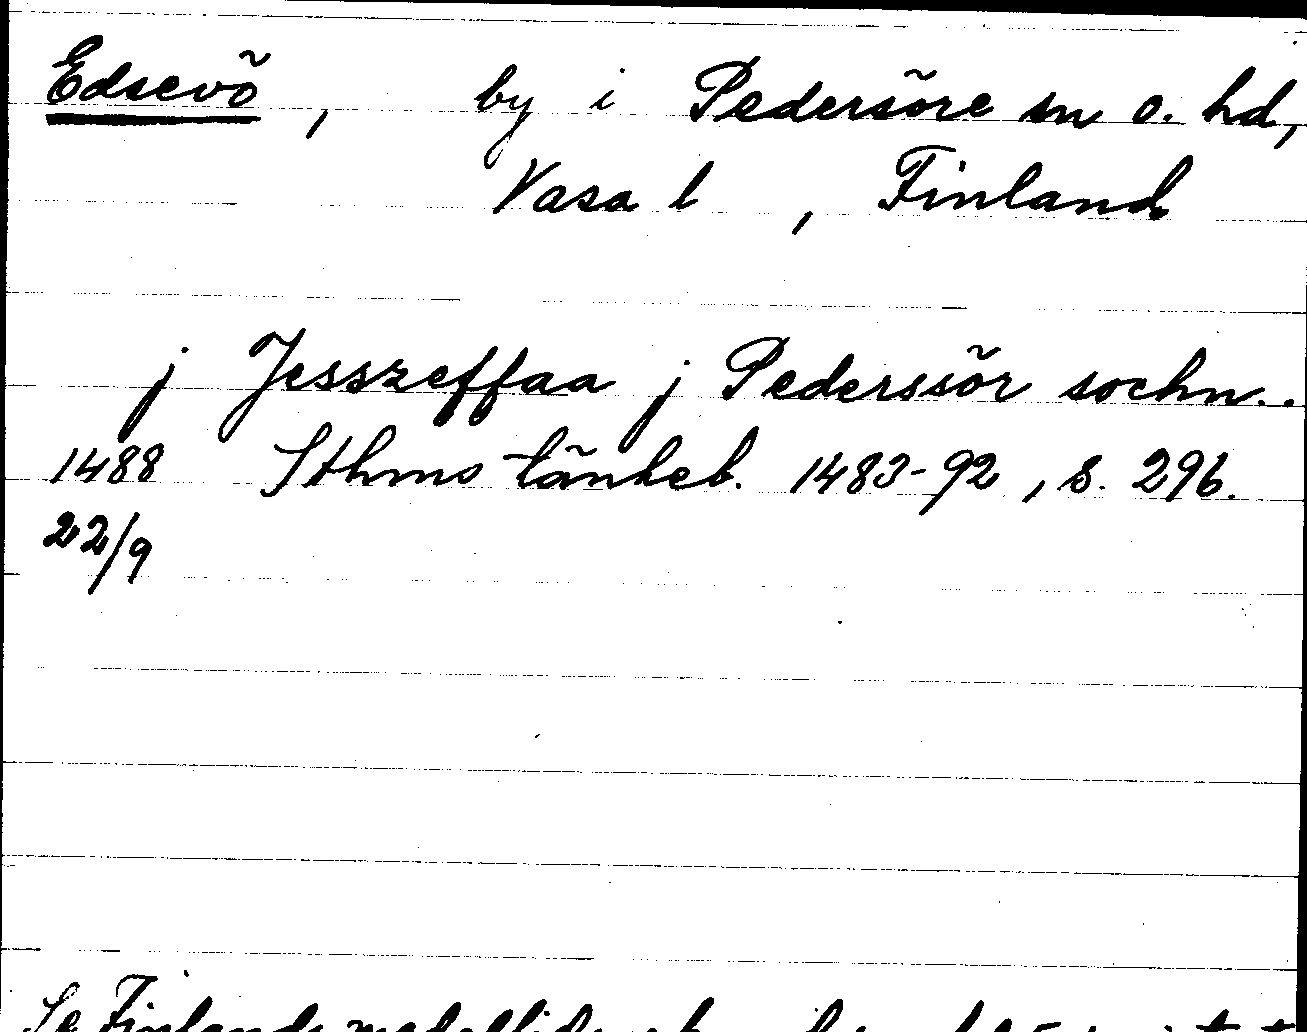 Edsevö, by i Pedersöre sn o. hd,
Vasa l, Finland
j Jesszeffaa j Pederssör sochn..
1488 Sthms tänkeb. 1483-92, s. 296.
22/9
Se Finlands medeltids